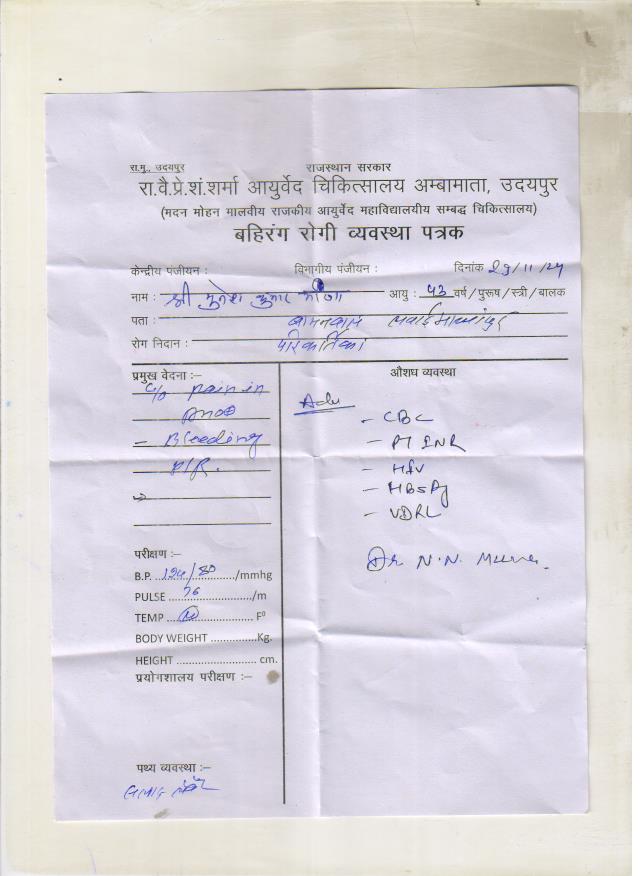 रा.मू., उदयपुर राजस्थान सरकार
रा.वै.प्रे.शं.शर्मा आयुर्वेद चिकित्सालय अम्बामाता, उदयपुर
(मदन मोहन मालवीय राजकीय आयुर्वेद महाविद्यालयीय सम्बद्ध चिकित्सालय)
बहिरंग रोगी व्यवस्था पत्रक
केन्द्रीय पंजीयन : विभागीय पंजीयन : दिनांक 29/11/24
नाम : श्री मुकेश कुमार आयु : 43 वर्ष/पुरूष/स्त्री/बालक
पता : बामनवास सवाई माधोपुर
रोग निदान : परिकर्तिका
प्रमुख वेदना :– औशध व्यवस्था
C/o pain in
Adv
– CBC
– Bleeding
– PT INR
P/R.
– HIV
– HBsAg
– VDRL
परीक्षण :–
Dr N.N. Meena.
B.P. 124/80 /mmhg
PULSE 76 /m
TEMP N F⁰
BODY WEIGHT Kg.
HEIGHT cm.
प्रयोगशालय परीक्षण :–
पथ्य व्यवस्था :–